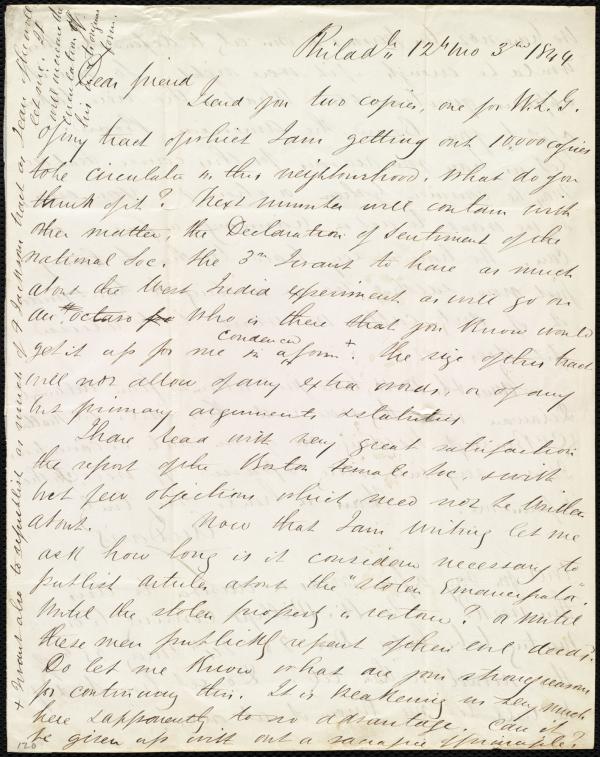 Philada 12th mo 3rd 1844
Dear friend
I send you two copies, one for W. L. G.
of my tract of which I am getting out 10,000 copies
to be circulated in this neighbourhood. What do you
think of it? Next number will contain with
other matter, the Declaration of Sentiment of the
National Soc. the 3rd I want to have as much
about the West India experiment as will go on
an octavo Who is there that you know would
get it up for me in a condensed form +. The size of this tract
will not allow of any extra words, or of any
but primary arguments & statistics
I have read with very great satisfaction
the report of the Boston Female Soc. & with
but few objections which need not be written
about. Now that I am writing let me
ask how long is it considered necessary to
publish articles about the "stolen Emancipator".
Until the stolen property is restored? or until
these men publickly repent of their evil deeds?
Do let me know what are your strong reasons
for continuing this. It is weakening us very much
here & apparently to no advantage. Can it
be given up with out a sacrifice of principle?
+ I want also to republish as much of F Jackson tract as I can afterwards
get in. It
will increase the
circulation of
his
form.
120